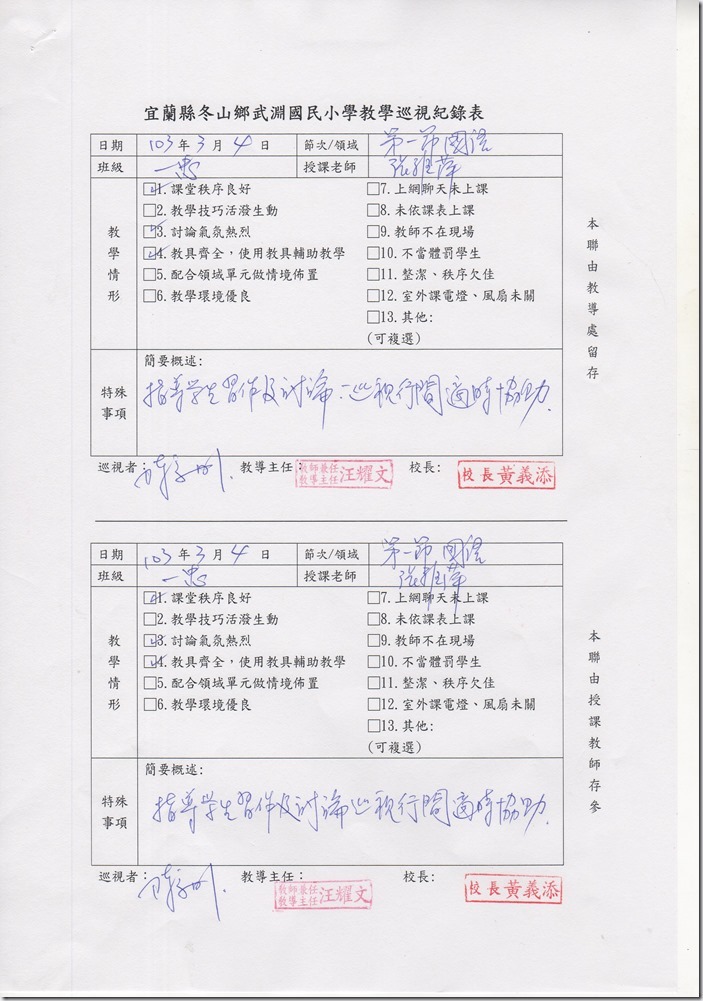 宜蘭縣冬山鄉武淵國民小學教學巡視紀錄表
日期 103年3月4日 節次/領域 第一節 國語
班級 一忠 授課老師 張雅萍
教學情形
☑1.課堂秩序良好 □7.上網聊天未上課
□2.教學技巧活潑生動 □8.未依課表上課
☑3.討論氣氛熱烈 □9.教師不在現場
☑4.教具齊全，使用教具輔助教學 □10.不當體罰學生
□5.配合領域單元做情境佈置 □11.整潔、秩序欠佳
□6.教學環境優良 □12.室外課電燈、風扇未關
□13.其他:
(可複選)
特殊事項
簡要概述:
指導學生習作及討論：巡視行間適時協助.
巡視者： 教導主任： 教師兼任教導主任 汪耀文 校長: 校長 黃義添
本聯由教導處留存
日期 103年3月4日 節次/領域 第一節 國語
班級 一忠 授課老師 張雅萍
教學情形
☑1.課堂秩序良好 □7.上網聊天未上課
□2.教學技巧活潑生動 □8.未依課表上課
☑3.討論氣氛熱烈 □9.教師不在現場
☑4.教具齊全，使用教具輔助教學 □10.不當體罰學生
□5.配合領域單元做情境佈置 □11.整潔、秩序欠佳
□6.教學環境優良 □12.室外課電燈、風扇未關
□13.其他:
(可複選)
特殊事項
簡要概述:
指導學生習作及討論巡視行間適時協助.
巡視者： 教導主任： 教師兼任教導主任 汪耀文 校長: 校長 黃義添
本聯由授課教師存參